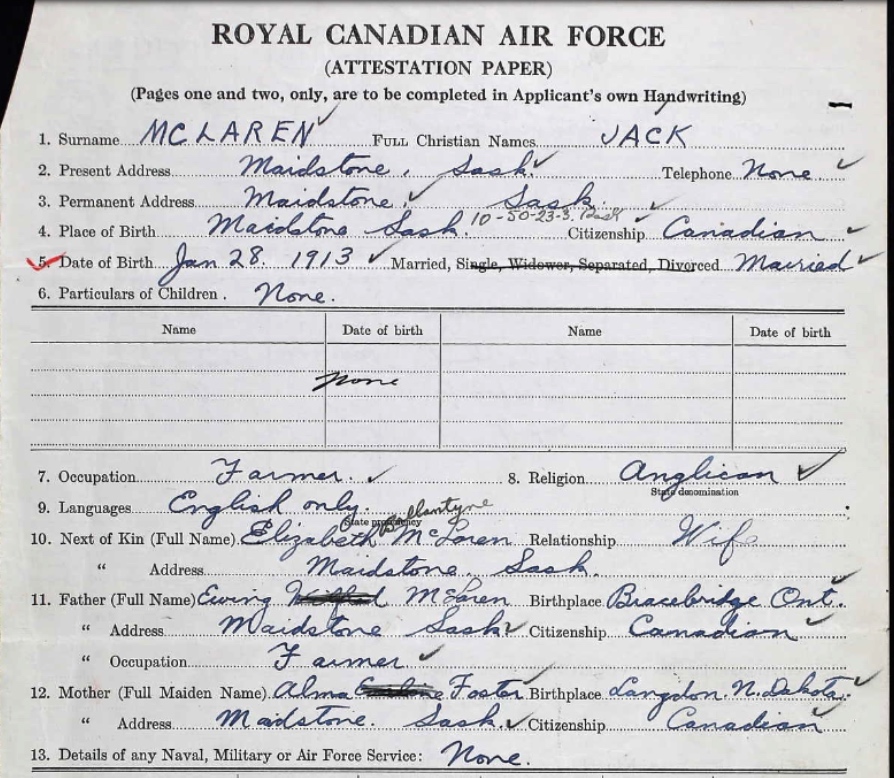 ROYAL CANADIAN AIR FORCE
(ATTESTATION PAPER)
(Pages one and two, only, are to be completed in Applicant's own Handwriting)
1. Surname MCLAREN Full Christian Names JACK
2. Present Address Maidstone, Sask. Telephone None.
3. Permanent Address Maidstone. Sask.
10-50-23-3.
4. Place of Birth Maidstone Sask. Citizenship Canadian
5. Date of Birth Jan 28. 1913 Married, Single, Widower, Separated, Divorced Married
6. Particulars of Children. None.
Name Date of birth Name Date of birth
None
7. Occupation Farmer. 8. Religion Anglican
State denomination
9. Languages English only.
State proficiency
Ballantyne
10. Next of Kin (Full Name) Elizabeth McLaren Relationship Wife
" Address Maidstone. Sask.
11. Father (Full Name) Ewing McLaren Birthplace Bracebridge Ont.
" Address Maidstone Sask Citizenship Canadian
" Occupation Farmer
12. Mother (Full Maiden Name) Alma Foster Birthplace Langdon. N. Dakota.
" Address Maidstone. Sask. Citizenship Canadian
13. Details of any Naval, Military or Air Force Service: None.